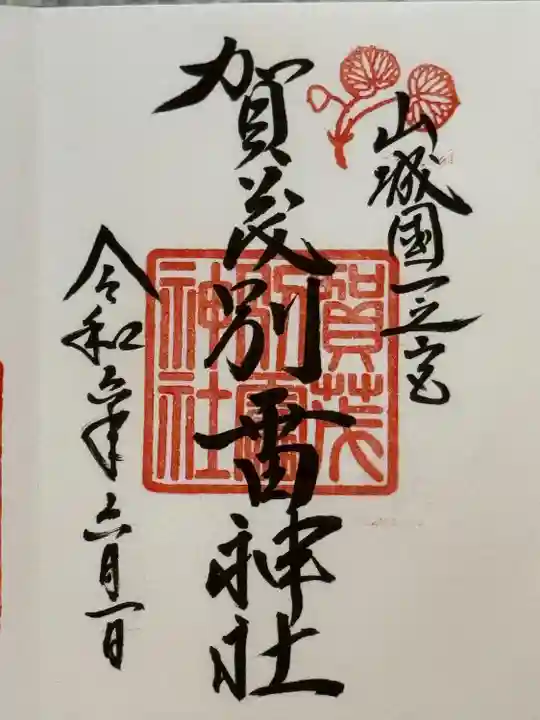 山城國一之宮
賀茂別雷神社
賀茂
別雷
神社
令和六年六月一日